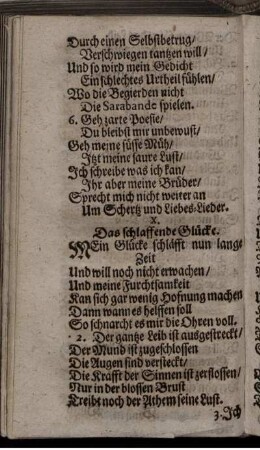 Durch einen Selbstbetrug/
Verschwiegen tantzen will/
Und so wird mein Gedicht
Ein schlechtes Urtheil fühlen/
Wo die Begierden nicht
Die Sarabande spielen.
6. Geh zarte Poesie/
Du bleibst mir unbewust/
Geh meine süsse Müh/
Itzt meine saure Lust/
Ich schreibe was ich kan/
Ihr aber meine Brüder/
Sprecht mich nicht weiter an
Um Schertz und Liebes-Lieder.
X.
Das schlaffende Glücke.
MEin Glücke schläfft nun lange
Zeit
Und will noch nicht erwachen/
Und meine Furchtsamkeit
Kan sich gar wenig Hofnung machen
Dann wann es helffen soll
So schnarcht es mir die Ohren voll.
2. Der gantze Leib ist ausgestreckt/
Der Mund ist zugeschlossen
Die Augen sind versteckt/
Die Krafft der Sinnen ist zerflossen/
Nur in der blossen Brust
Treibt noch der Athem seine Lust.
3. Ich